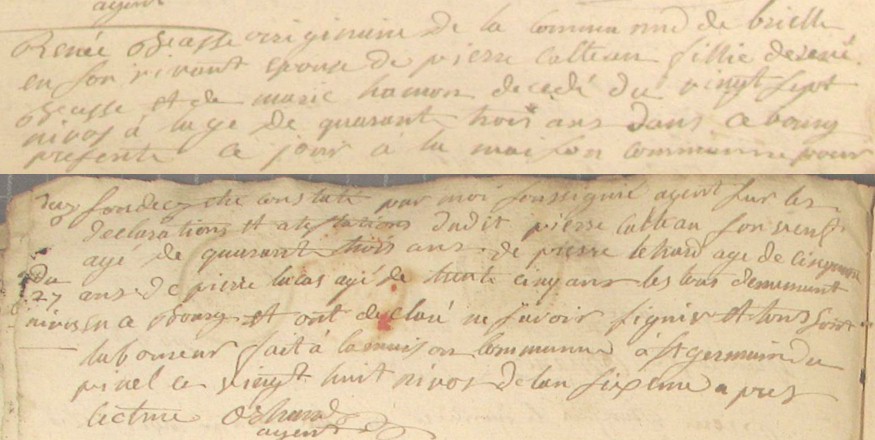 agent
Renée originaire de la commune de brielle
en son vivant epouse de pierre catteau fillie de rené
et de marie hamon decedé du vingt sept
nivos a lage de quarant trois ans dans ce bourg
presente ce jour a la maison commune pour
son deces etre constaté par moi soussigné agent sur les
declarations et atestations dudit pierre catteau son
age de quarant trois ans de pierre age de
Du
27 ans de pierre lucas agé de trente cinq ans les tous demeurant
nivos en ce bourg et ont declaré ne savoir signer et tous sont
laboureur fait a la maison commune a st germain du
pinel ce vingt huit nivos de lan sixeme apres
lecture
agent